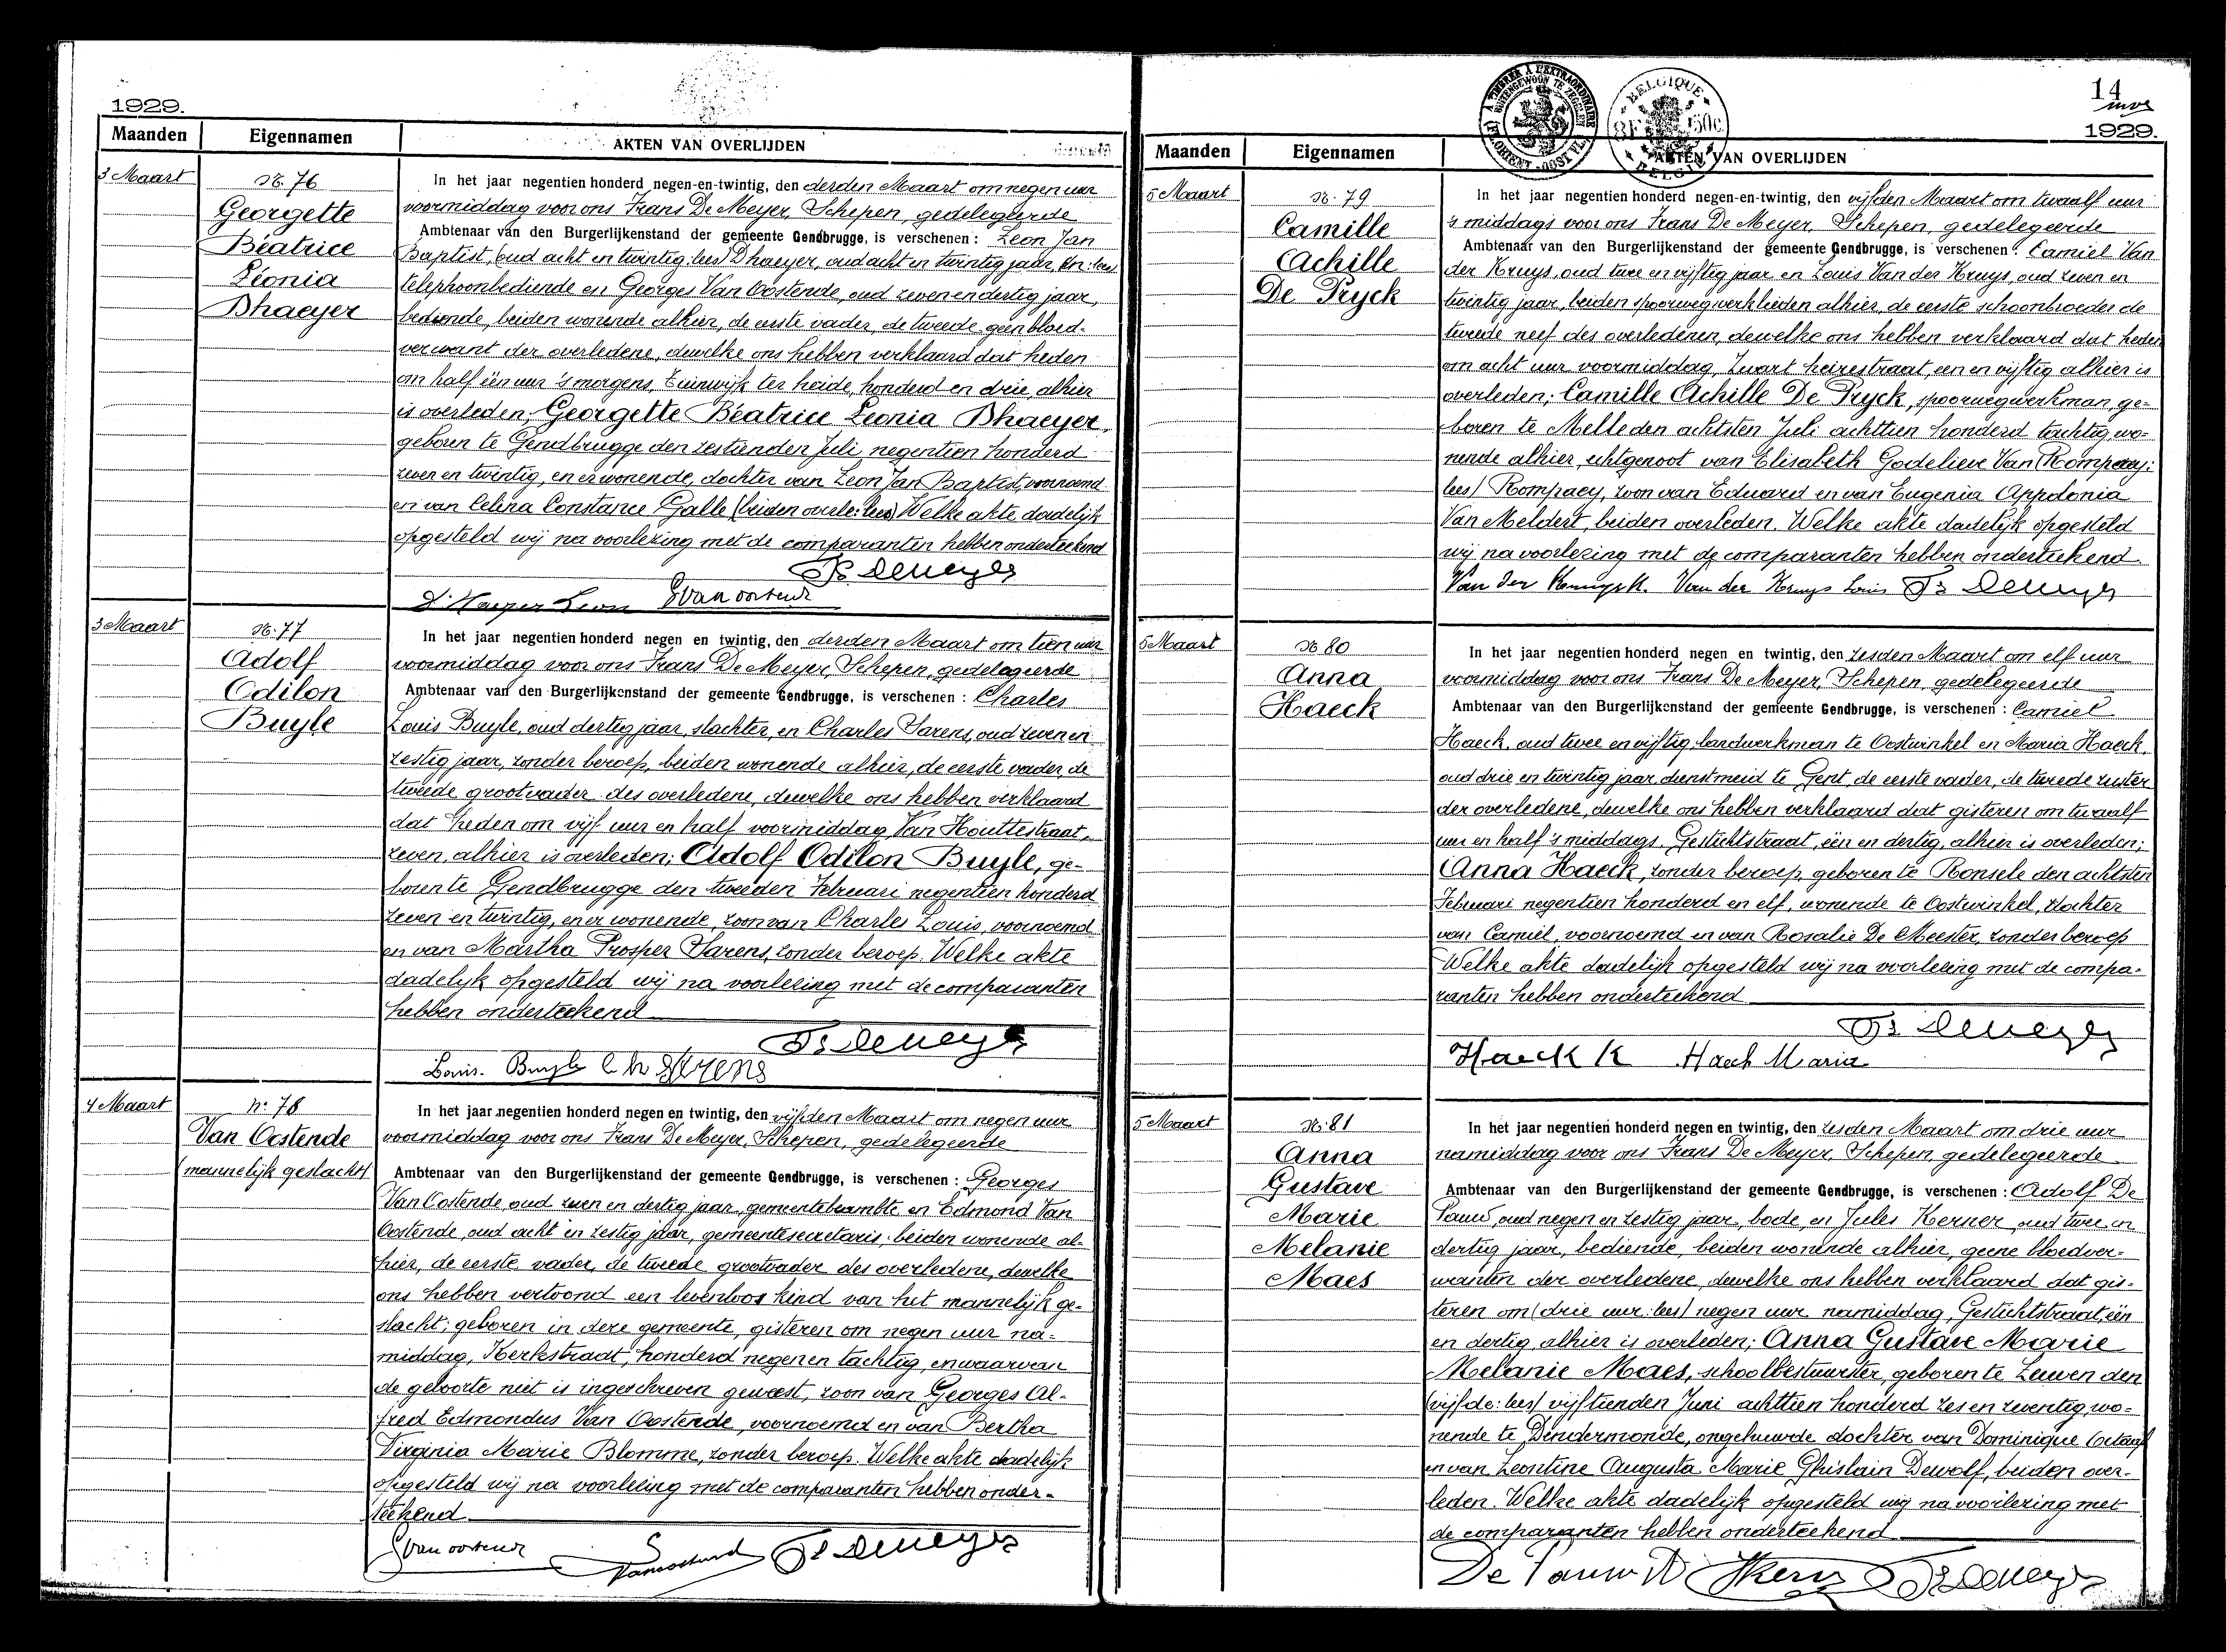 1929.
Maanden
Eigennamen
AKTEN VAN OVERLIJDEN
3 Maart
N. 76
Georgette
Béatrice
Léonia
Dhaeyer
In het jaar negentien honderd negen-en-twintig, den derden Maart om negen uur
voormiddag voor ons Frans De Meyer, Schepen, gedelegeerde
Ambtenaar van den Burgerlijkenstand der gemeente Gendbrugge, is verschenen : Leon Jan
Baptist, (oud acht en twintig: lees) Dhaeyer, oud acht en twintig jaar, (en: lees)
telephoonbediende en Georges Van Oostende, oud zeven en dertig jaar,
bediende, beiden wonende alhier, de eerste vader, de tweede geen bloed-
verwant der overledene, dewelke ons hebben verklaard dat heden
om half één uur 's morgens, Tuinwijk ter heide, honderd en drie, alhier
is overleden; Georgette Béatrice Léonia Dhaeyer,
geboren te Gendbrugge den zestienden Juli negentien honderd
zeven en twintig, en er wonende, dochter van Leon Jan Baptist, voornoemd
en van Celina Constance Galle (beiden overle: lees) Welke akte dadelijk
opgesteld wij na voorlezing met de comparanten hebben onderteekend
Fs Demeyer
D'Haeyer Leon GVanoostende
3 Maart
N. 77
Adolf
Odilon
Buyle
In het jaar negentien honderd negen en twintig, den derden Maart om tien uur
voormiddag voor ons Frans De Meyer, Schepen, gedelegeerde
Ambtenaar van den Burgerlijkenstand der gemeente Gendbrugge, is verschenen : Charles
Louis Buyle, oud dertig jaar, slachter, en Charles Sarens, oud zeven en
zestig jaar, zonder beroep, beiden wonende alhier, de eerste vader, de
tweede grootvader des overledene, dewelke ons hebben verklaard
dat heden om vijf uur en half voormiddag, Van Houttestraat,
zeven, alhier is overleden; Adolf Odilon Buyle, ge-
boren te Gendbrugge den tweeden Februari negentien honderd
zeven en twintig, en er wonende, zoon van Charles Louis, voornoemd
en van Martha Prosper Sarens, zonder beroep. Welke akte
dadelijk opgesteld wij na voorlezing met de comparanten
hebben onderteekend
Fs Demeyer
Louis Buyle Ch Sarens
4 Maart
N. 78
Van Oostende
(mannelijk geslacht)
In het jaar negentien honderd negen en twintig, den vijfden Maart om negen uur
voormiddag voor ons Frans De Meyer, Schepen, gedelegeerde
Ambtenaar van den Burgerlijkenstand der gemeente Gendbrugge, is verschenen : Georges
Van Oostende oud zeven en dertig jaar, gemeentebeambte, en Edmond Van
Oostende, oud acht en zestig jaar, gemeentesecretaris, beiden wonende al-
hier, de eerste vader, de tweede grootvader des overledene, dewelke
ons hebben vertoond een levenloos kind van het mannelijk ge-
slacht; geboren in deze gemeente, gisteren om negen uur na-
middag, Kerkstraat, honderd negen en tachtig, en waarvan
de geboorte niet is ingeschreven geweest, zoon van Georges Al-
fred Edmondus Van Oostende, voornoemd en van Bertha
Virginia Marie Blomme, zonder beroep. Welke akte dadelijk
opgesteld wij na voorlezing met de comparanten hebben onder-
teekend
GVanoostende Vanoostende Fs Demeyer
14
1929.
A TIMBRER A L'EXTRAORDINAIRE
BUITENGEWOON TE ZEGELEN
BELGIQUE
8F 50c
BELGIE
Maanden
Eigennamen
AKTEN VAN OVERLIJDEN
5 Maart
N. 79
Camille
Achille
De Pryck
In het jaar negentien honderd negen-en-twintig, den vijfden Maart om twaalf uur
's middags voor ons Frans De Meyer, Schepen, gedelegeerde
Ambtenaar van den Burgerlijkenstand der gemeente Gendbrugge, is verschenen : Camiel Van
der Kruys, oud twee en vijftig jaar en Louis Van der Kruys, oud zeven en
twintig jaar, beiden spoorwegwerklieden alhier, de eerste schoonbroeder de
tweede neef des overledenen, dewelke ons hebben verklaard dat heden
om acht uur voormiddag, Zwart heirestraat, een en vijftig alhier is
overleden; Camille Achille De Pryck, spoorwegwerkman, ge-
boren te Melle den achtsten Juli achttien honderd tachtig, wo-
nende alhier, echtgenoot van Elisabeth Godelieve Van (Rompaey:
lees) Rompaey, zoon van Eduard en van Eugenia Appolonia
Van Meldert, beiden overleden. Welke akte dadelijk opgesteld
wij na voorlezing met de comparanten hebben onderteekend.
Van der Kruys K. Van der Kruys Louis Fs Demeyer
5 Maart
N. 80
Anna
Haeck
In het jaar negentien honderd negen en twintig, den zesden Maart om elf uur
voormiddag voor ons Frans De Meyer, Schepen, gedelegeerde
Ambtenaar van den Burgerlijkenstand der gemeente Gendbrugge, is verschenen : Camiel
Haeck, oud twee en vijftig, landwerkman te Oostwinkel en Maria Haeck,
oud drie en twintig jaar, dienstmeid te Gent, de eerste vader, de tweede zuster
der overledene, dewelke ons hebben verklaard dat gisteren om twaalf
uur en half 's middags, Gestichtstraat, één en dertig, alhier is overleden;
Anna Haeck, zonder beroep, geboren te Ronsele den achtsten
Februari negentien honderd en elf, wonende te Oostwinkel, dochter
van Camiel, voornoemd en van Rosalie De Meester, zonder beroep
Welke akte dadelijk opgesteld wij na voorlezing met de compa-
ranten hebben onderteekend
Fs Demeyer
Haeck K Haeck Maria
5 Maart
N. 81
Anna
Gustave
Marie
Melanie
Maes
In het jaar negentien honderd negen en twintig, den zesden Maart om drie uur
namiddag voor ons Frans De Meyer, Schepen, gedelegeerde
Ambtenaar van den Burgerlijkenstand der gemeente Gendbrugge, is verschenen : Adolf De
Pauw, oud negen en zestig jaar, bode, en Jules Kerner, oud twee en
dertig jaar, bediende, beiden wonende alhier, geene bloedver-
wanten der overledene, dewelke ons hebben verklaard dat gis-
teren om (drie uur: lees) negen uur namiddag, Gestichtstraat, één
en dertig, alhier is overleden; Anna Gustave Marie
Melanie Maes, schoolbestuurster, geboren te Leuven den
(vijfde: lees) vijftienden Juni achttien honderd zes en zeventig, wo-
nende te Dendermonde, ongehuwde dochter van Dominique Octaaf
en van Leontine Augusta Marie Ghislain Dewolf, beiden over-
leden. Welke akte dadelijk opgesteld wij na voorlezing met
de comparanten hebben onderteekend
De Pauw A JKerner Fs Demeyer